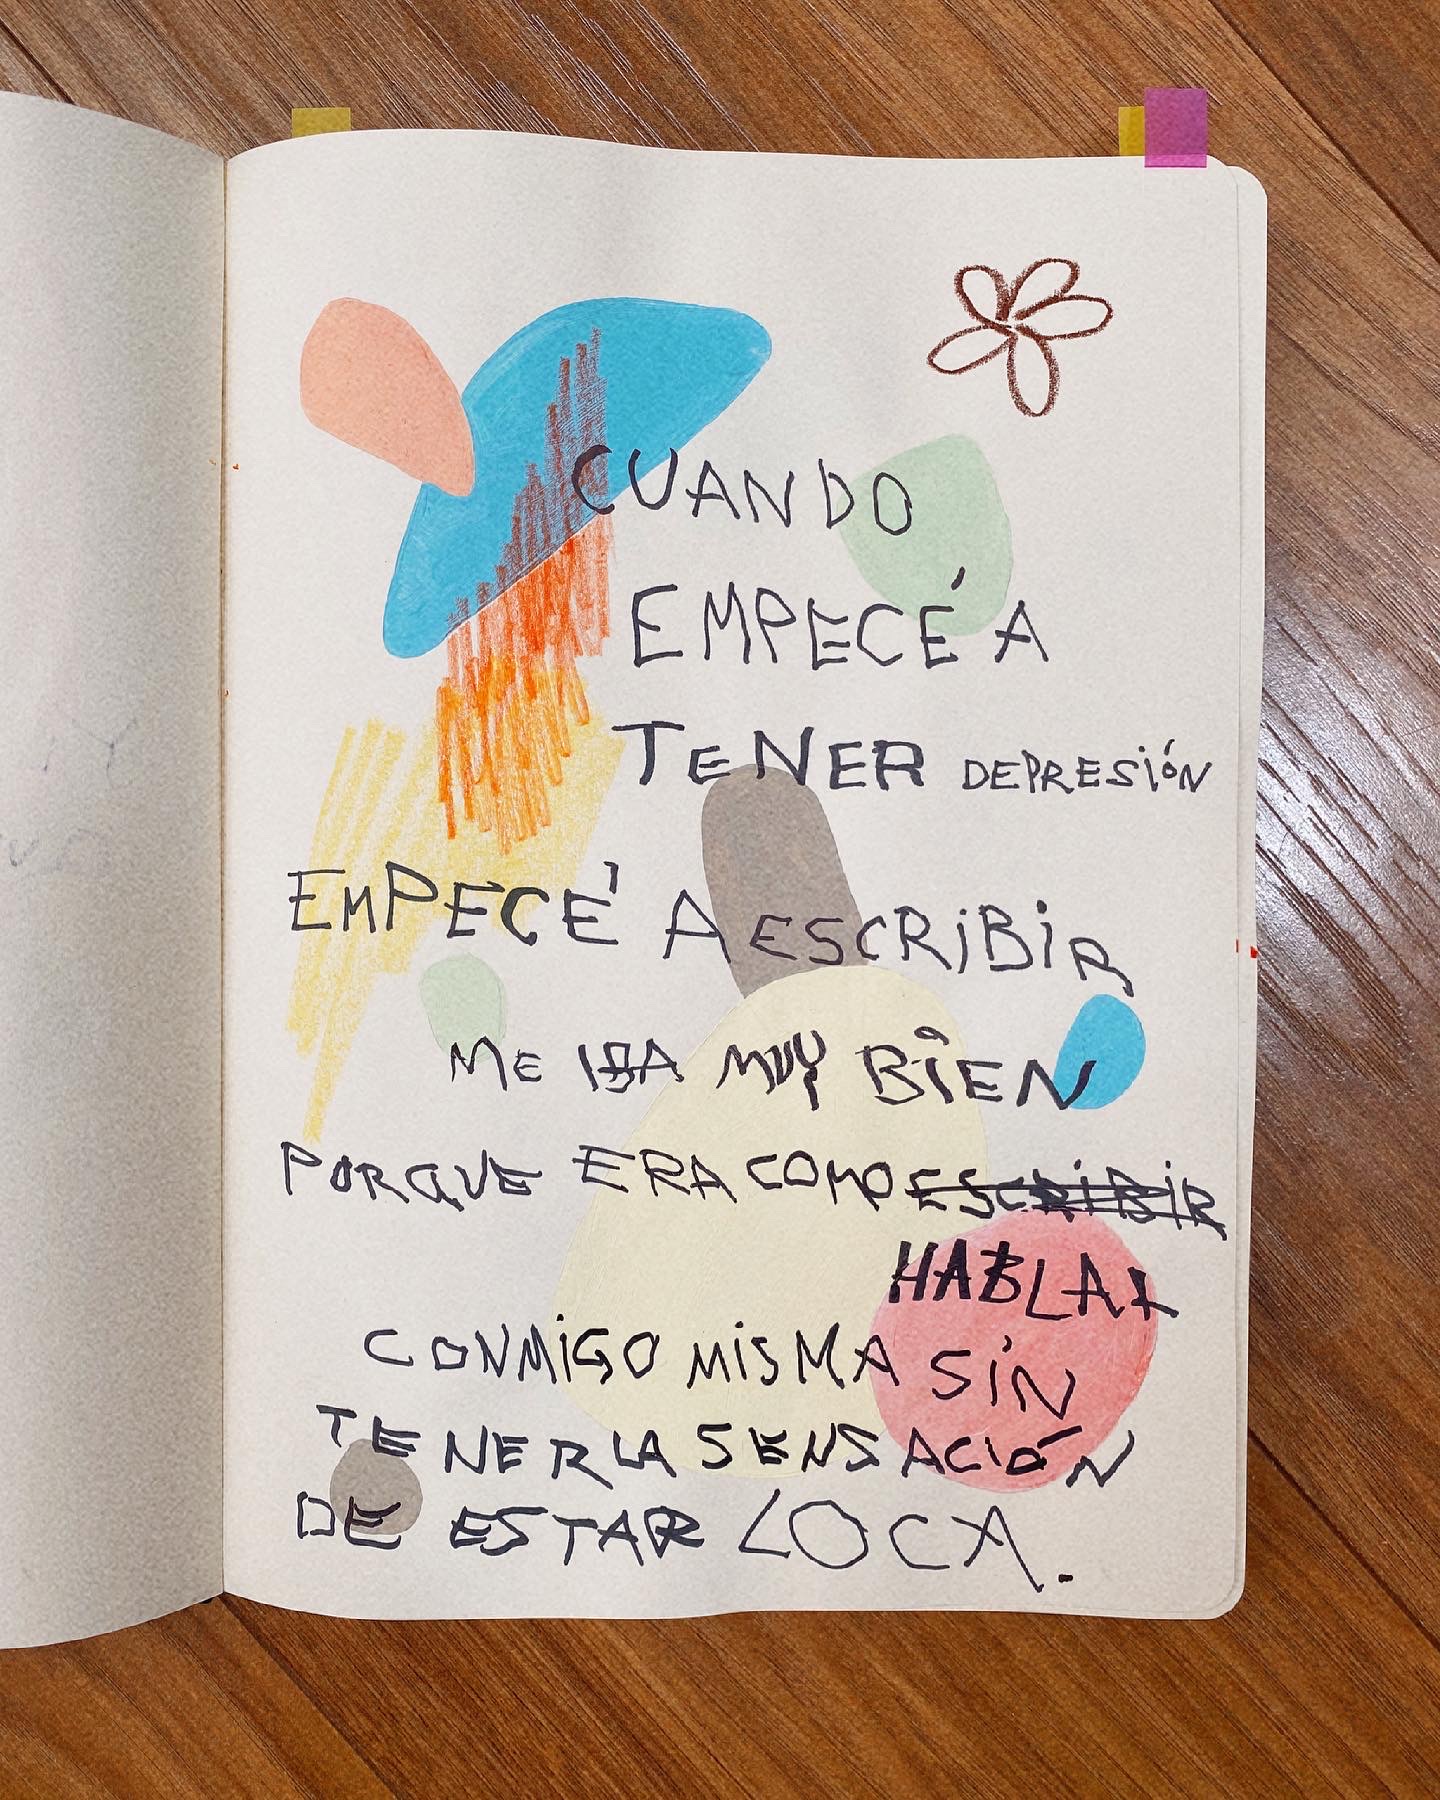 CUANDO
EMPECÉ A
TENER DEPRESIÓN
EMPECÉ A ESCRIBIR
ME IBA MUY BIEN
PORQUE ERA COMO ESCRIBIR
HABLAR
CONMIGO MISMA SÍN
TENER LA SENSACIÓN
DE ESTAR LOCA.